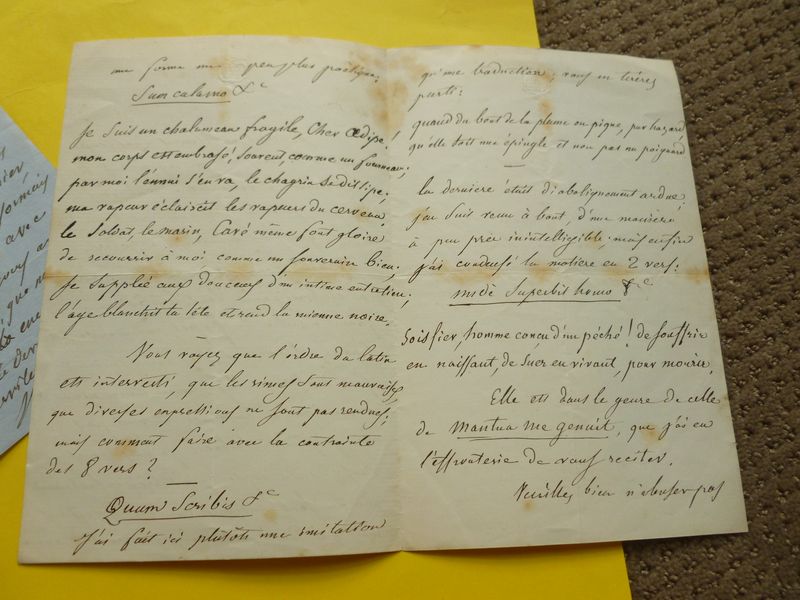 une forme un peu plus poétique;
Sum calamo &c
Je suis un chalumeau fragile, Cher Œdipe!
mon corps est embrasé, souvent comme un fourneau;
par moi l'ennui s'en va, le chagrin se dissipe;
ma vapeur éclaircit les vapeurs du cerveau,
le soldat, le marin, l'avé même font gloire
de recourir à moi comme un souverain bien.
Je supplée aux douceurs d'un intime entretien;
l'âge blanchit ta tête et rend la mienne noire.
Vous voyez que l'ordre du latin
est interverti, que les rimes sont mauvaises,
que diverses expressions ne sont pas rendues;
mais comment faire avec la contrainte
des 8 vers?
Quum Scribis &c
J'ai fait ici plutôt une imitation
qu'une traduction; vous en tirerez
parti:
quand du bout de la plume on pique, par hazard,
qu'elle soit une épingle et non pas un poignard
la dernière était diaboliquement ardue;
j'en suis venu à bout, d'une manière
à peu près inintelligible mais enfin
j'ai condensé la matière en 2 vers:
unde Superbit homo &c
Sois fier, homme conçu d'un péché! de souffrir
en naissant, de suer en vivant, pour mourir.
Elle est dans le genre de celle
de Mantua me genuit, que j'ai eu
l'effronterie de vous réciter.
Veuillez bien n'abuser pas